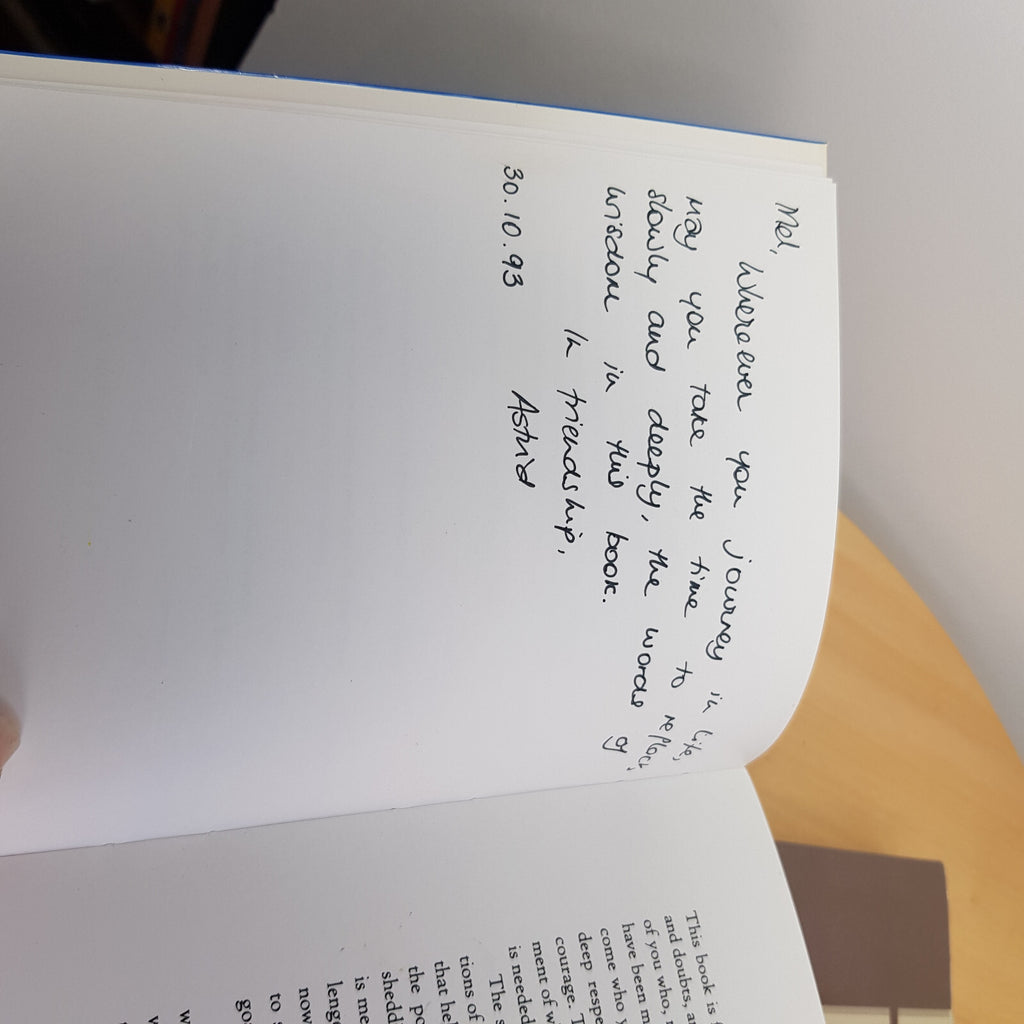 Mel,
Whereever you journey in life,
May you take the time to reflect,
slowly and deeply, the words of
wisdom in this book.
In friendship,
30.10.93 Astrid
This book is
and doubts,
of you who,
have been
come who
deep
courage.
ment of
is needed
The
tions of
that
the
is
now
to